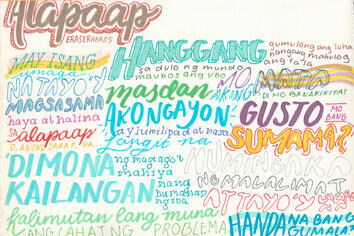 Alapaap
ERASERHEADS
MAY ISANG
umaga
NA TAYO'Y
MAGSASAMA
haya at halina
sa alapaap
O, ANONG SARAP, HA
HANGGANG
sa dulo ng mundo
maubos ang ubo
gumulong ang luha
hanggang mahulog
ang tala
masdan
MO
AKING
MATA
DI MO BA NAKIKITA?
AKO NGAYON-
ay lumilipad at nasa
Langit na
GUSTO
MO BANG
SUMAMA?
'DI MO NA
KAILANGAN
ng magago't
mahiya
hang
humanas
ng iba
HUMINGA
NG MALALIM AT
AT TAYO'Y
Kalimutan lang muna
LANG/LAHAT NG PROBLEMA
HANDA NA BANG
GUMALA?